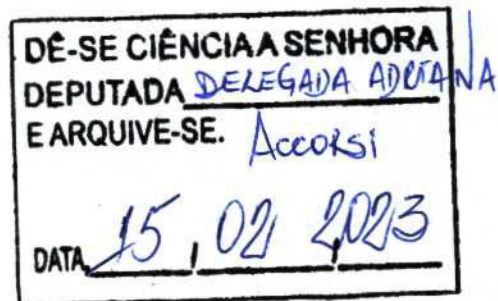 DÊ-SE CIÊNCIA A SENHORA
DEPUTADA DELEGADA ADRIANA
E ARQUIVE-SE. Accorsi
DATA 15, 02, 2023